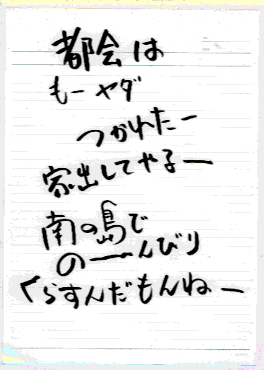 都会は
もーヤダ
つかれたー
家出してやるー
南の島で
のーんびり
くらすんだもんねー